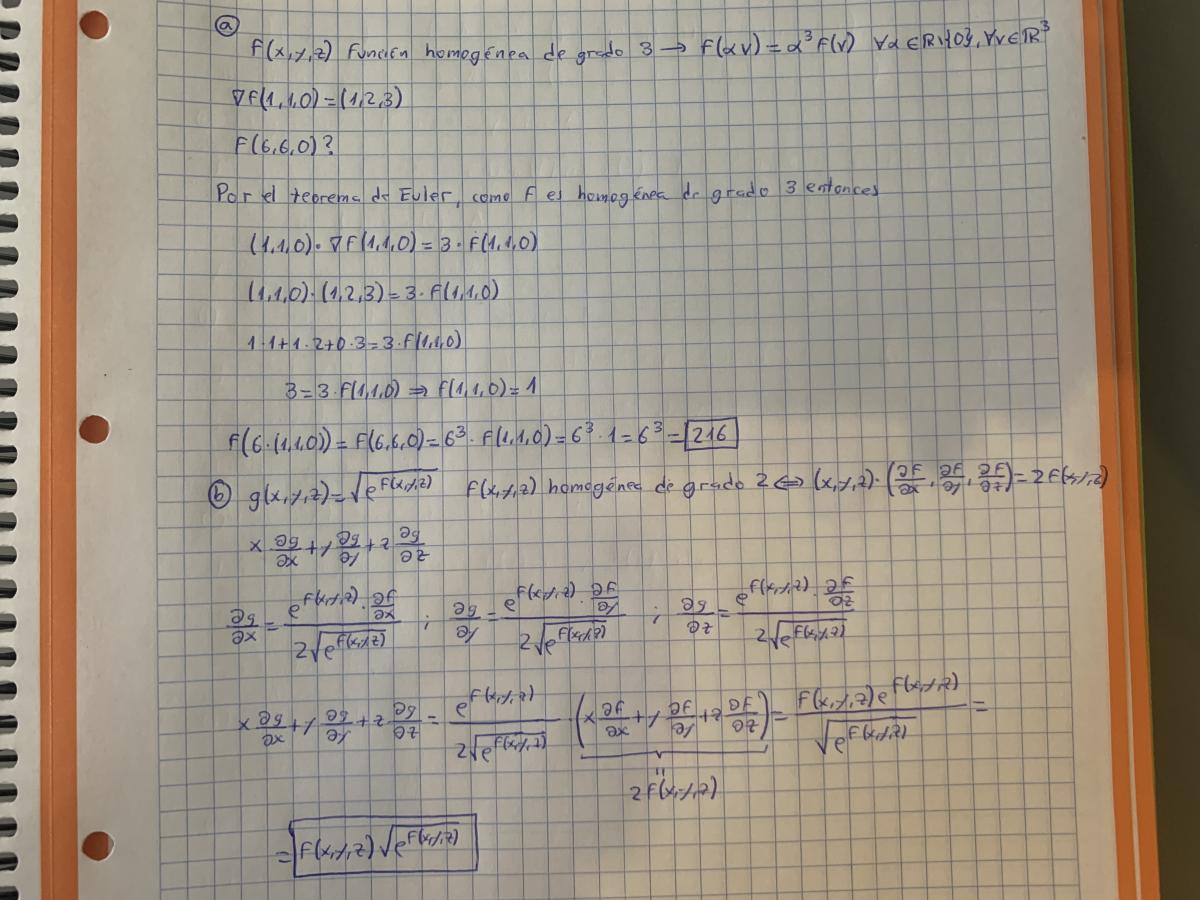 ⓐ
F(x,y,z) Función homogénea de grado 3 → F(αv) = α³F(v) ∀α∈ℝ\{0}, ∀v∈ℝ³
∇F(1,1,0)=(1,2,3)
F(6,6,0)?
Por el teorema de Euler, como F es homogénea de grado 3 entonces
(1,1,0)·∇F(1,1,0)=3·F(1,1,0)
(1,1,0)·(1,2,3)=3·F(1,1,0)
1·1+1·2+0·3=3·F(1,1,0)
3=3·F(1,1,0) ⇒ F(1,1,0)=1
F(6·(1,1,0))=F(6,6,0)=6³·F(1,1,0)=6³·1=6³=216
ⓑ g(x,y,z)=√(e^F(x,y,z)) F(x,y,z) homogénea de grado 2 ⇔ (x,y,z)·(∂F/∂x, ∂F/∂y, ∂F/∂z)=2F(x,y,z)
x ∂g/∂x + y ∂g/∂y + z ∂g/∂z
∂g/∂x = (e^F(x,y,z) · ∂F/∂x)/(2√(e^F(x,y,z))) ; ∂g/∂y = (e^F(x,y,z) · ∂F/∂y)/(2√(e^F(x,y,z))) ; ∂g/∂z = (e^F(x,y,z) · ∂F/∂z)/(2√(e^F(x,y,z)))
x ∂g/∂x + y ∂g/∂y + z ∂g/∂z = e^F(x,y,z)/(2√(e^F(x,y,z))) · (x ∂F/∂x + y ∂F/∂y + z ∂F/∂z) = F(x,y,z)e^F(x,y,z)/√(e^F(x,y,z)) =
"
2F(x,y,z)
= F(x,y,z)√(e^F(x,y,z))